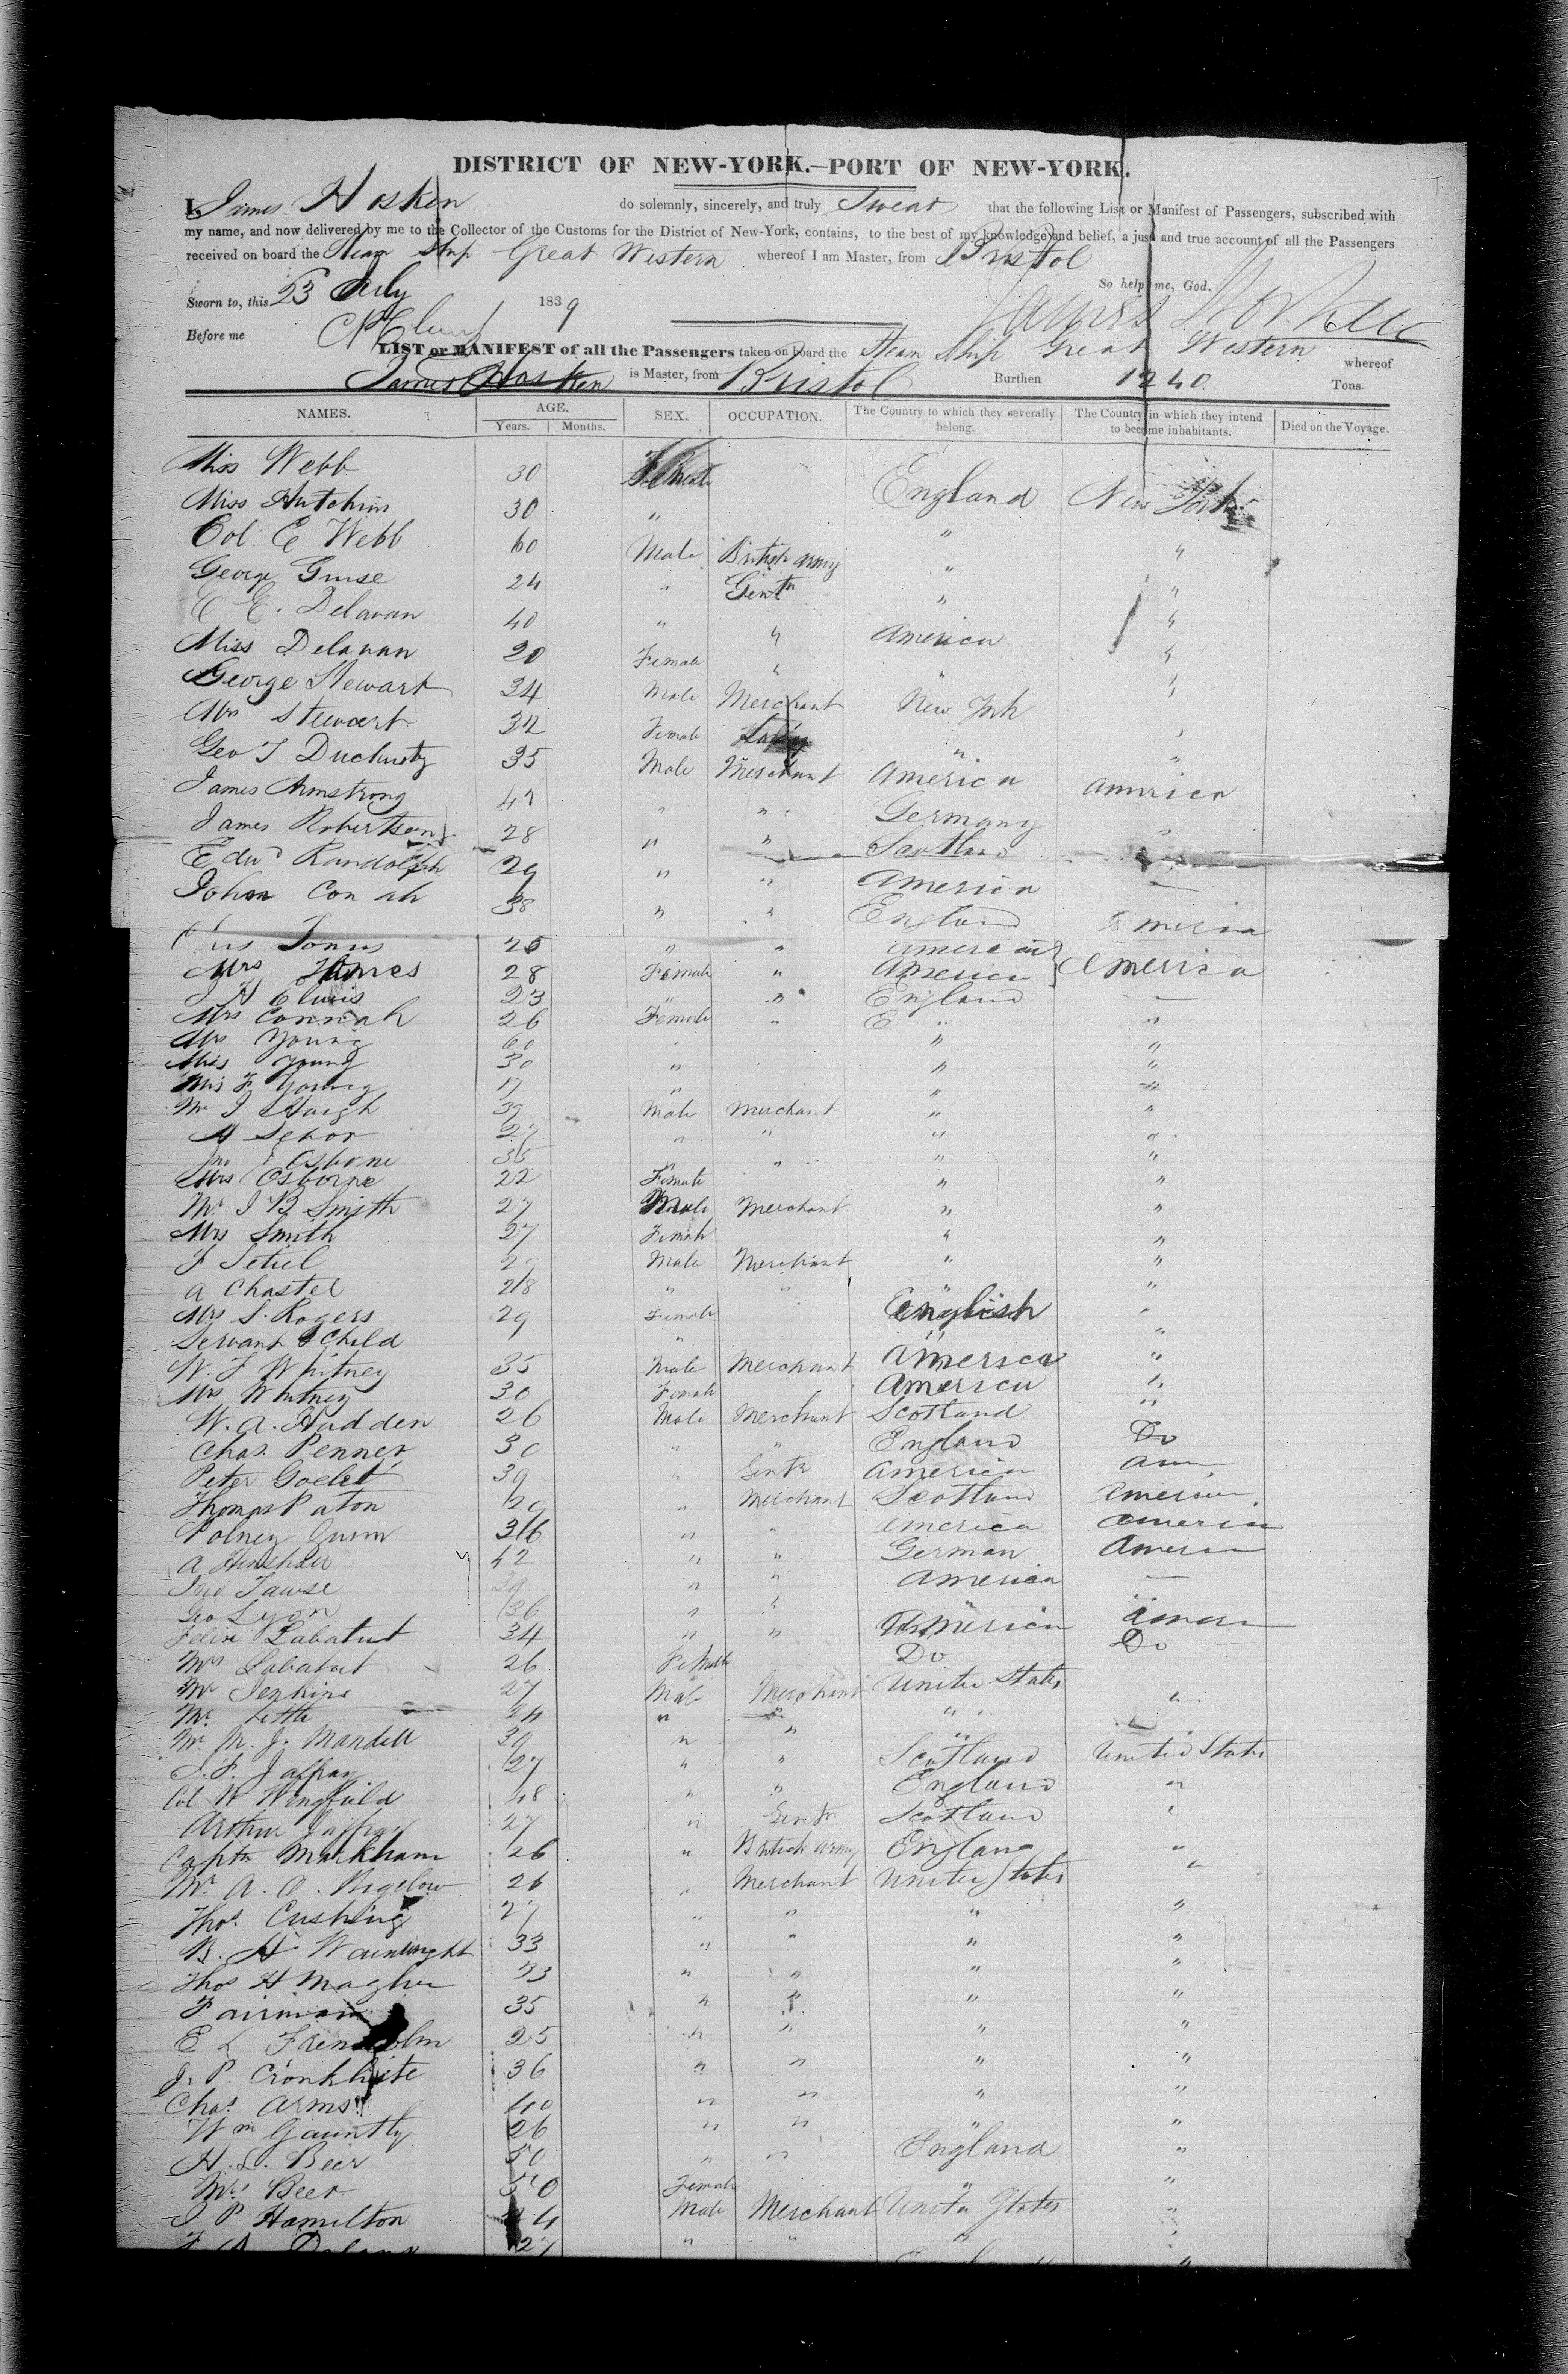 DISTRICT OF NEW-YORK.—PORT OF NEW-YORK.
I, James Hosken do solemnly, sincerely, and truly Swear that the following List or Manifest of Passengers, subscribed with
my name, and now delivered by me to the Collector of the Customs for the District of New-York, contains, to the best of my knowledge and belief, a just and true account of all the Passengers
received on board the Steam Ship Great Western whereof I am Master, from Bristol
So help me, God.
Sworn to, this 23 July 1839 James Hosken
Before me
LIST or MANIFEST of all the Passengers taken on board the Steam Ship Great Western whereof
James Hosken is Master, from Bristol Burthen 1240 Tons.
NAMES. AGE. SEX. OCCUPATION. The Country to which they severally belong. The Country in which they intend to become inhabitants. Died on the Voyage.
Years. Months.
Miss Webb 30 Female England New York
Miss Hutchins 30 " "
Col. E Webb 60 Male British army " "
George Guise 24 " Gentn " "
E C. Delavan 40 " " America "
Miss Delavan 20 Female " " "
George Stewart 34 Male Merchant New York "
Mrs Stewart 32 Female Lady " "
Geo T 35 Male Merchant America America
James Armstrong 47 " " Germany "
James Robertson 28 " " Scotland
Edwd Randolph 29 " " America —
John Connah 38 " " England America
26 " " America
Mrs 28 Female " America America
23 " " England —
Mrs Connah 26 Female " E " "
Mrs Young 60 " " "
Miss Young 30 " " "
Miss F Young 17 " " "
Mr J Haigh 39 Male Merchant " "
27 " " " "
Jno Osborne 35 " " " "
Mrs Osborne 22 Female " "
Mr J B Smith 27 Male Merchant " "
Mrs Smith 27 Female " "
Male Merchant " "
A Chastel 28 " " " "
Mrs S. Rogers 29 Female English "
Servant & Child " " "
W. F Whitney 35 Male Merchant America "
Mrs Whitney 30 Female America "
W. A. Hadden 26 Male Merchant Scotland "
Chas. Penner 30 " " England Do
Peter Goelet 39 " Gentn America Am
Thomas Paton 29 " Merchant Scotland American
36 " " America America
A 42 " " German America
39 " " America —
Geo Lyon 36 " " " "
Felix Labatut 34 " " American
Mrs Labatut 26 Female Do Do
Mr Jenkins 27 Male Merchant United States
Mr. Little 24 " " " "
Mr. M. J. Mandell 39 " " "
J. R. Jaffray 27 " " Scotland United States
Col W Wingfield 48 " " England "
Arthur Jaffray 27 " Gentn Scotland "
Captn Markham 26 " British Army England "
Mr. A. O. Bigelow 26 " Merchant United States "
Thos. Cushing 27 " " " "
B. H Wainwright 33 " " " "
Thos H 33 " " " "
Fairman 35 " " " "
E L 25 " " " "
J. P. Cronkhite 36 " " " "
Chas. Arms 40 " " " "
Wm Gauntly 26 " " " "
H. L. Beer 50 " " England "
Mrs Beer 50 Female " "
J P Hamilton Male Merchant United States "
27 " " " "